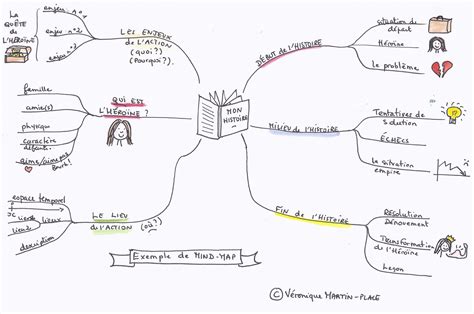 LA
QUÊTE
DE
L'HÉROÏNE
enjeu n°1
enjeu n°2
enjeu
LES ENJEUX
DE L'ACTION
(quoi?)
(Pourquoi?).
famille
amie(s)
physique
caractère
défauts.
aime/aime pas
Beurk!
QUI EST
L'HÉROÏNE ?
espace temporel
lieux
description
LE LIEU
DE L'ACTION (où?)
MON
HISTOIRE
DÉBUT DE L'HISTOIRE
situation de
départ
Héroïne
Le problème
MILIEU DE L'HISTOIRE
Tentatives de
solution
ÉCHECS
la situation
empire
FIN DE L'HISTOIRE
RÉSOLUTION
Dénouement
Transformation
de l'Héroïne
Leçon
Exemple de MIND-MAP
© Véronique MARTIN-PLACE